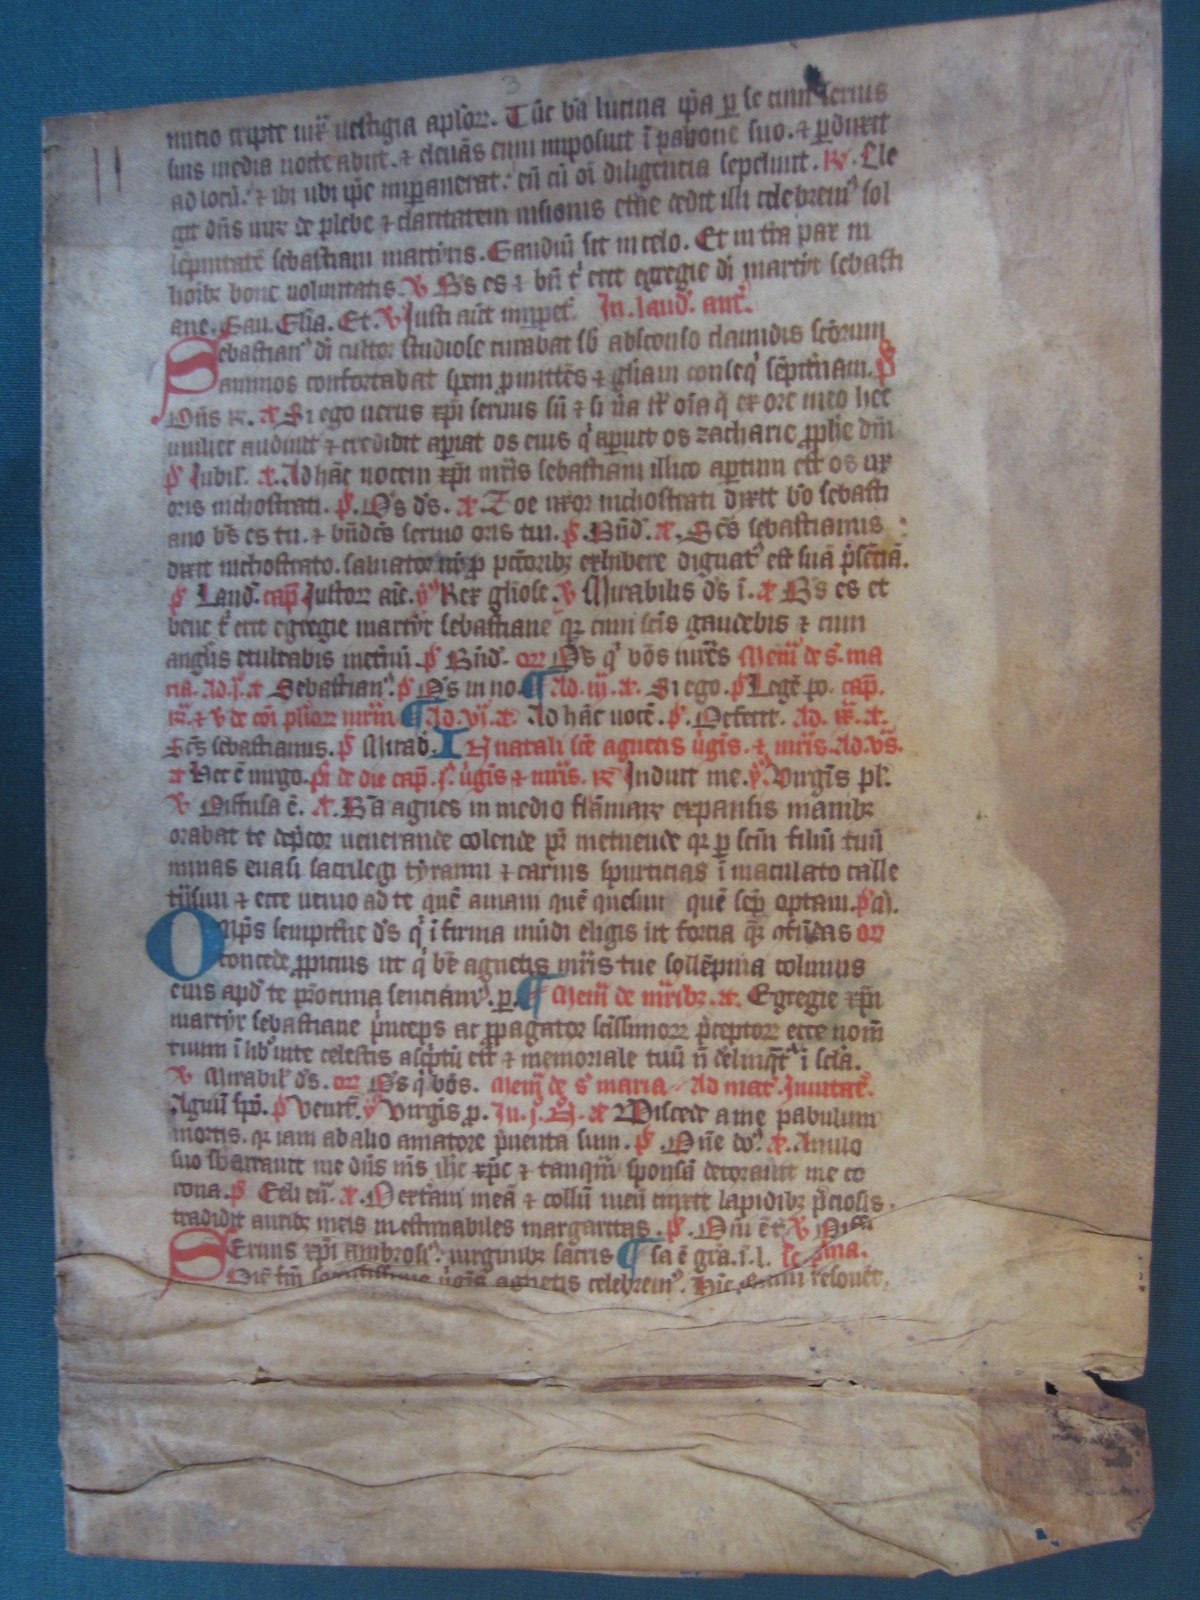 3
inicio cripte iux̄ uestigia aplōꝝ. Tūc bā lucina ip̄a ꝑ se cum seruis
suis media nocte abiit. ⁊ eleuās eum imposuit ī pabone suo. ⁊ ꝑduxit
ad locū. ⁊ ibi ubi ip̄e impauerat. eū cū oī diligencia sepeliuit. ꝶ. Ele
git dn̄s uiꝝ de plebe ⁊ claritatem uisionis et̄ne dedit illi celebremꝰ sol
lēpnitatē sebastiani martyris. Gaudiū sit in celo. Et in tr̄a pax in
hoībꝫ bone uoluntatis. ℣ Bs̄ es ⁊ bn̄ t̄ erit egregie dī martyr sebasti
ane. Gau. Glīa. Et. ℣ Justi aūt inꝑpet̄. In. laud. ant̄.
Sebastianꝰ dī cultor studiose curabat sb̄ absconso clamidis scōrum
animos confortabat spem ꝓmittēs ⁊ glīam conseq̄ sēpit̄nam. p̄
Dn̄s ꝶ. a᷑ Si ego uerus xp̄i seruus sū ⁊ si ūa st̄ oīa q̄ ex ore meo hec
mulier audiuit ⁊ credidit aꝑiat os eius q̄ aꝑuit os zacharie ꝓphē dn̄i
p̄ Jubil̄. a᷑. Ad hāc uocem xp̄i mr̄is sebastiani illico aꝑtum est os ux
oris nichostrati. p̄. Ds̄ ds̄. a᷑. Zoe uxor nichostrati dixit bō sebasti
ano bs̄ es tu. ⁊ bn̄dc̄s sermo oris tui. p̄. Bn̄d. a᷑. Sc̄s sebastianus
dixit nichostrato. saluator ꝑ pctōribꝫ exhibere dignatꝰ est suā p̄sēciā.
p̄ Laud. cap̄ Justoꝝ aīē. ẏ Rex gliōse. ℣ Mirabilis ds̄ ī. a᷑ Bs̄ es et
bene t̄ erit egregie martyr sebastiane qꝛ cum sc̄is gaudebis ⁊ cum
angl̄is exultabis in et̄nū. p̄ Bn̄d. oꝝ Ds̄ q̄ bōs uir̄es Mem̄ de s. ma
ria. Ad. j. a᷑ Sebastianꝰ. p̄ Ds̄ in no. ¶ Ad. iij. a᷑. Si ego. p̄ Legē po. cap̄.
ꝶ. ⁊ ℣ de cōi plioꝝ mr̄m ¶ Ad. vi. a᷑ Ad hāc uocē. p̄. Defecit. Ad. ix. a᷑.
Sc̄s sebastianus. p̄ Mirab. In natali sc̄e agnetis ūgīs. ⁊ mr̄is. Ad. vs̄.
a᷑ Hec ē uirgo. ps̄ de die cap̄. s. ūgīs ⁊ mr̄is. ꝶ Induit me. ẏ. Virgīs pl̄.
℣ Diffusa ē. a᷑. Bā agnes in medio flāmaꝝ expansis manibꝫ
orabat te dep̄cor uenerande colende pr̄ metuende qꝛ ꝑ scm̄ filiū tuū
minas euasi sacrilegi tyranni ⁊ carnis spurticias ī maculato calle
t̄nsiui ⁊ ecce uenio ad te quē amaui quē quesiui quē semp̄ optaui. p̄ M.
Omps̄ sempit̄ne ds̄ q̄ īfirma mūdi eligis ut fortia q̄ꝫ ꝯfūdas oꝝ
concede ꝓpicius ut q̄ bē agnetis mr̄is tue sollēpnia colimus
eius apd̄ te pr̄ocinia senciamꝰ. p. ¶ Mem̄ de mr̄ibꝫ. a᷑. Egregie xp̄i
martyr sebastiane p̄nceps ac ꝓpagator sc̄issimoꝝ p̄ceptoꝝ ecce nom̄
tuum ī libꝰ uite celestis asc̄ptū est ⁊ memoriale tuū n̄ delinqt̄ ī scl̄a.
℣ Mirabil̄ ds̄. oꝝ Ds̄ q̄ bōs. Mem̄ de s. maria Ad mat̄. Inuitat̄.
Agnū spō. p̄ Venit̄. ẏ Virgīs p. In. j. N. a᷑ Discede a me pabulum
mortis. qꝛ iam ab alio amatore p̄uenta sum. p̄. Dn̄e dn̄ꝰ. a᷑. Anulo
suo sb̄arrauit me dn̄s ms̄ ihc̄ xp̄c ⁊ tanqm̄ sponsā decorauit me co
rona. p̄ Celi en̄. a᷑. Dext̄am meā ⁊ collū meū cinxit lapidibꝫ p̄ciosis.
tradidit auribꝫ meis inestimabiles margaritas. p̄. Dn̄i ēt̄. ℣ Diff̄.
Seruus xp̄i ambrosiꝰ. uirginibꝫ sacris ¶ sa ē gr̄a. ī. l. lc̄ p̄ma.
agnetis celebremꝰ. Hīc resonēt.